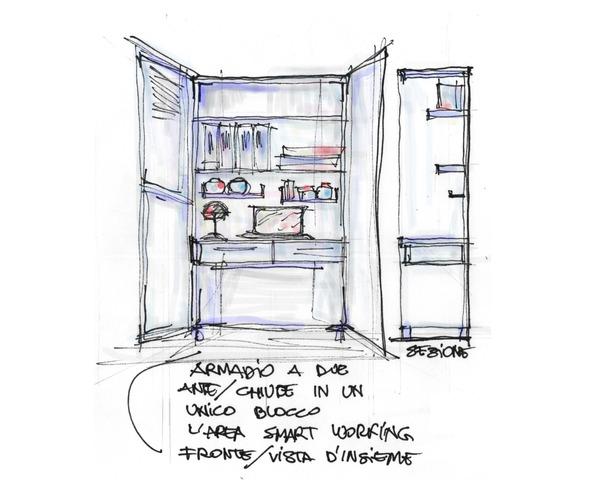 SEZIONE
ARMADIO A DUE
ANTE/CHIUDE IN UN
UNICO BLOCCO
L'AREA SMART WORKING
FRONTE/VISTA D'INSIEME